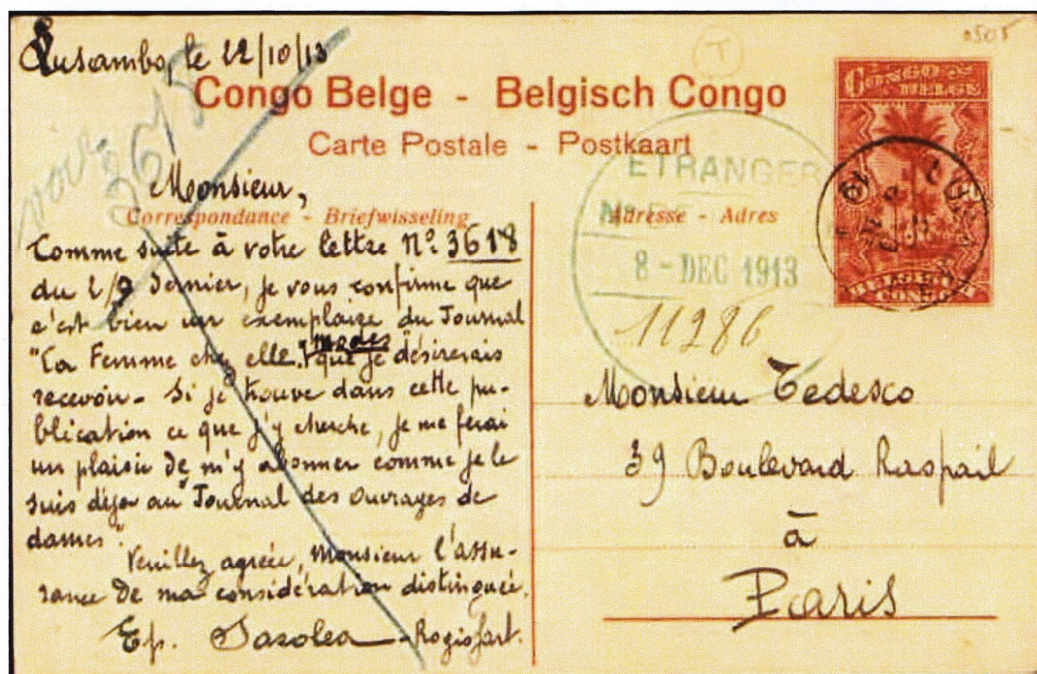 Lusambo, le 22/10/13
0505
T
Congo Belge - Belgisch Congo
Carte Postale - Postkaart
CONGO
BELGE
BELGISCH
CONGO
ETRANGER
8 - DEC 1913
11286
Monsieur,
Correspondance - Briefwisseling
Comme suite à votre lettre N° 3618
du 2/9 dernier, je vous confirme que
c'est bien un exemplaire du Journal
"La Femme chez elle. modes" que je désirerais
recevoir - Si je trouve dans cette pu-
blication ce que j'y cherche, je me ferai
un plaisir de m'y abonner comme je le
suis déjà au "Journal des Ouvrages de
dames".
Veuillez agréer, Monsieur l'assu-
rance de ma considération distinguée.
Ep. Sasolea - Rogisfart.
Adresse - Adres
Monsieur Tedesco
39 Boulevard Raspail
à
Paris